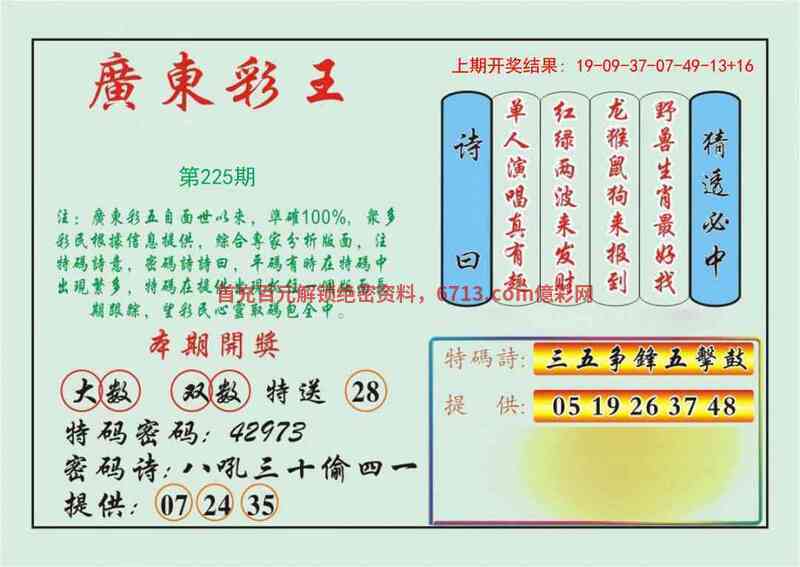 廣東彩王
第225期
注：廣東彩五自面世以來，準確100%，衆多
彩民根據信息提供，綜合專家分析版面，注
特碼詩意，密碼詩詩日，平碼有時在特碼中
出現繁多，特碼在提供
版面長
期跟踪，望彩民心靈取碼包全中。
首充百元解锁绝密资料，6713.com億彩网
本期開獎
大数 双数 特送 28
特码密码：42973
密码诗：八吼三十偷四一
提供：07 24 35
上期开奖结果：19-09-37-07-49-13+16
诗曰
单人演唱真有趣
红绿两波来发财
龙猴鼠狗来报到
野兽生肖最好找
猜透必中
特碼詩：三五争鋒五擊鼓
提 供：05 19 26 37 48